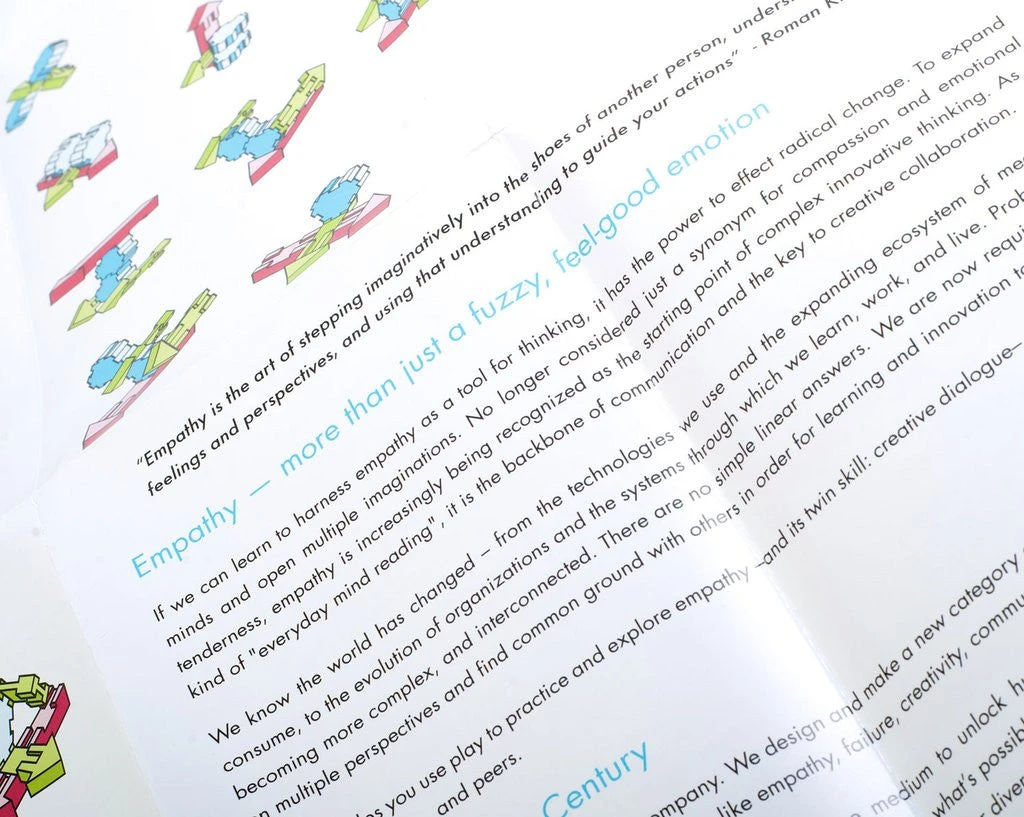 "Empathy is the art of stepping imaginatively into the shoes of another person,
feelings and perspectives, and using that understanding to guide your actions" - Roman
Empathy — more than just a fuzzy, feel-good emotion
If we can learn to harness empathy as a tool for thinking, it has the power to effect radical change. To expand
minds and open multiple imaginations. No longer considered just a synonym for compassion and emotional
tenderness, empathy is increasingly being recognized as the starting point of complex innovative thinking. As
kind of "everyday mind reading", it is the backbone of communication and the key to creative collaboration.
We know the world has changed – from the technologies we use and the expanding ecosystem of
consume, to the evolution of organizations and the systems through which we learn, work, and live.
becoming more complex, and interconnected. There are no simple linear answers. We are now
multiple perspectives and find common ground with others in order for learning and innovation
you use play to practice and explore empathy –and its twin skill: creative dialogue–
and peers.
Century
We design and make a new category
like empathy, failure, creativity,
medium to unlock
what's